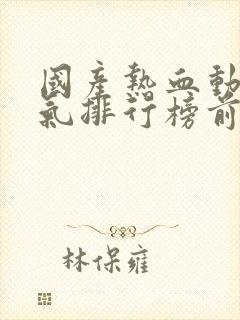 國產熱血動
氣排行榜前
林保雍